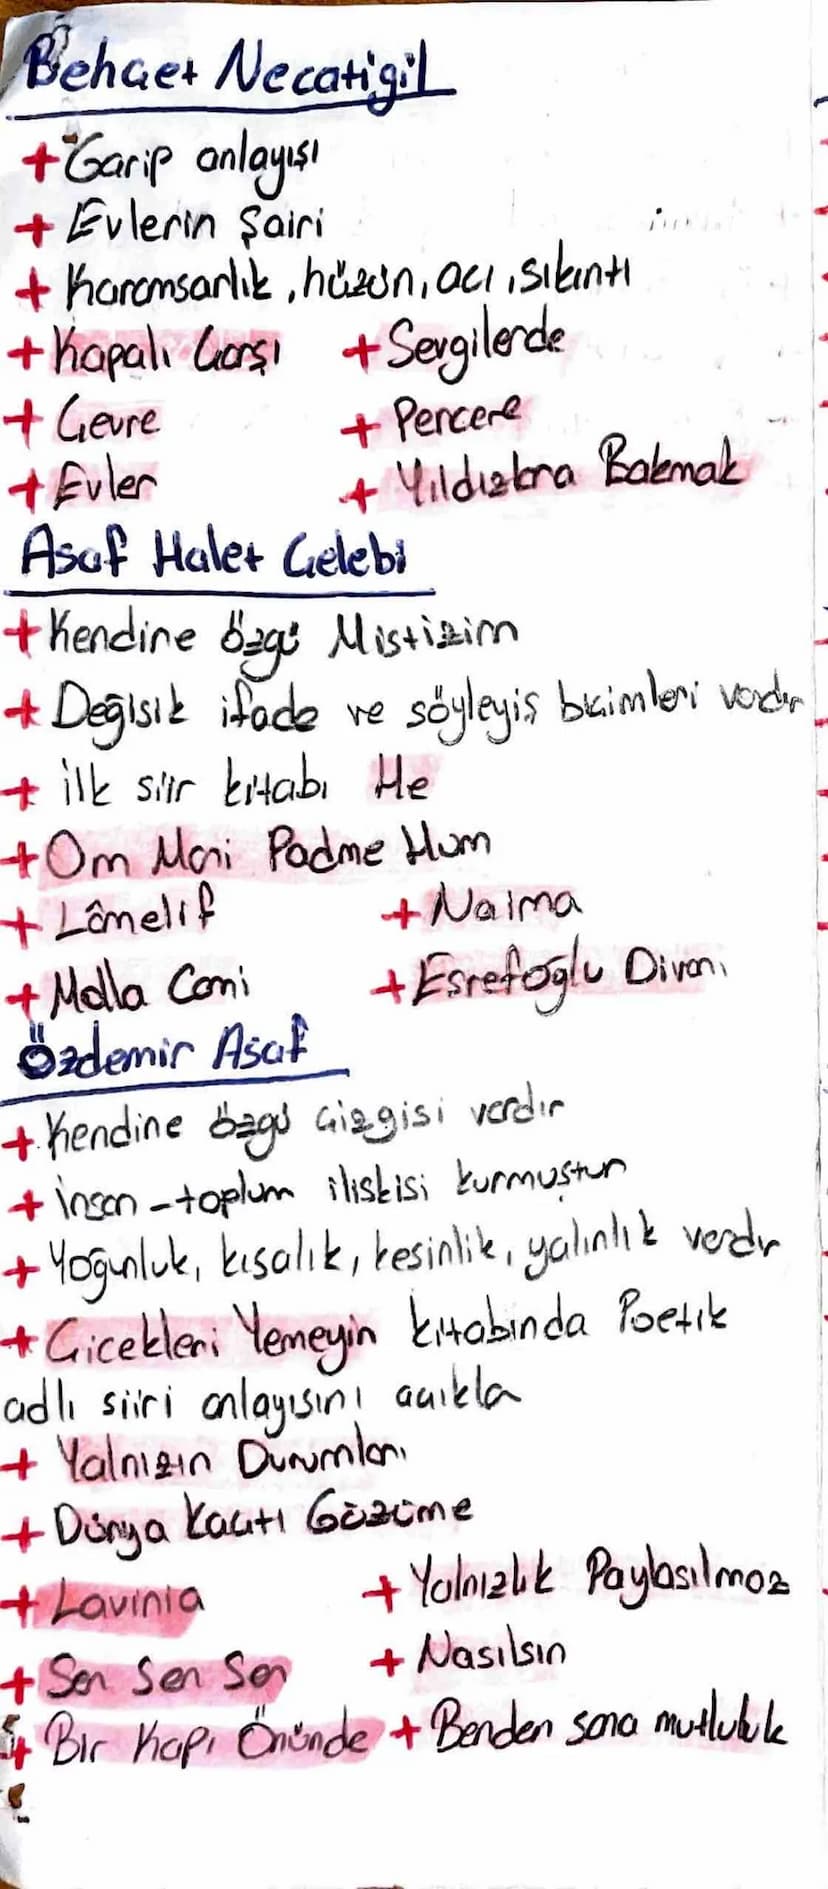 Behçet Necatigil
+ Garip anlayışı
+ Evlerin Şairi
+ Karamsarlık, hüzün, acı, sıkıntı
+ Kapalı Çarşı + Sevgilerde
+ Çevre + Percere
+ Evler + Yıldızlara Bakmak
Asaf Halet Çelebi
+ Kendine özgü Mistizim
+ Değişik ifade ve söyleyiş biçimleri vardır
+ ilk şiir kitabı He
+ Om Mani Padme Hum
+ Lâmelif + Naima
+ Molla Cami + Eşrefoğlu Divanı
Özdemir Asaf
+ Kendine özgü çizgisi vardır
+ insan-toplum ilişkisi kurmuştur
+ Yoğunluk, kısalık, kesinlik, yalınlık vardır
+ Çiçekleri Yemeyin kitabında Poetik
adlı şiiri anlayışını açıkla
+ Yalnızın Durumları
+ Dünya Kaçtı Gözüme
+ Lavinia + Yalnızlık Paylaşılmaz
+ Sen Sen Sen + Nasılsın
+ Bir Kapı Önünde + Benden sana mutluluk